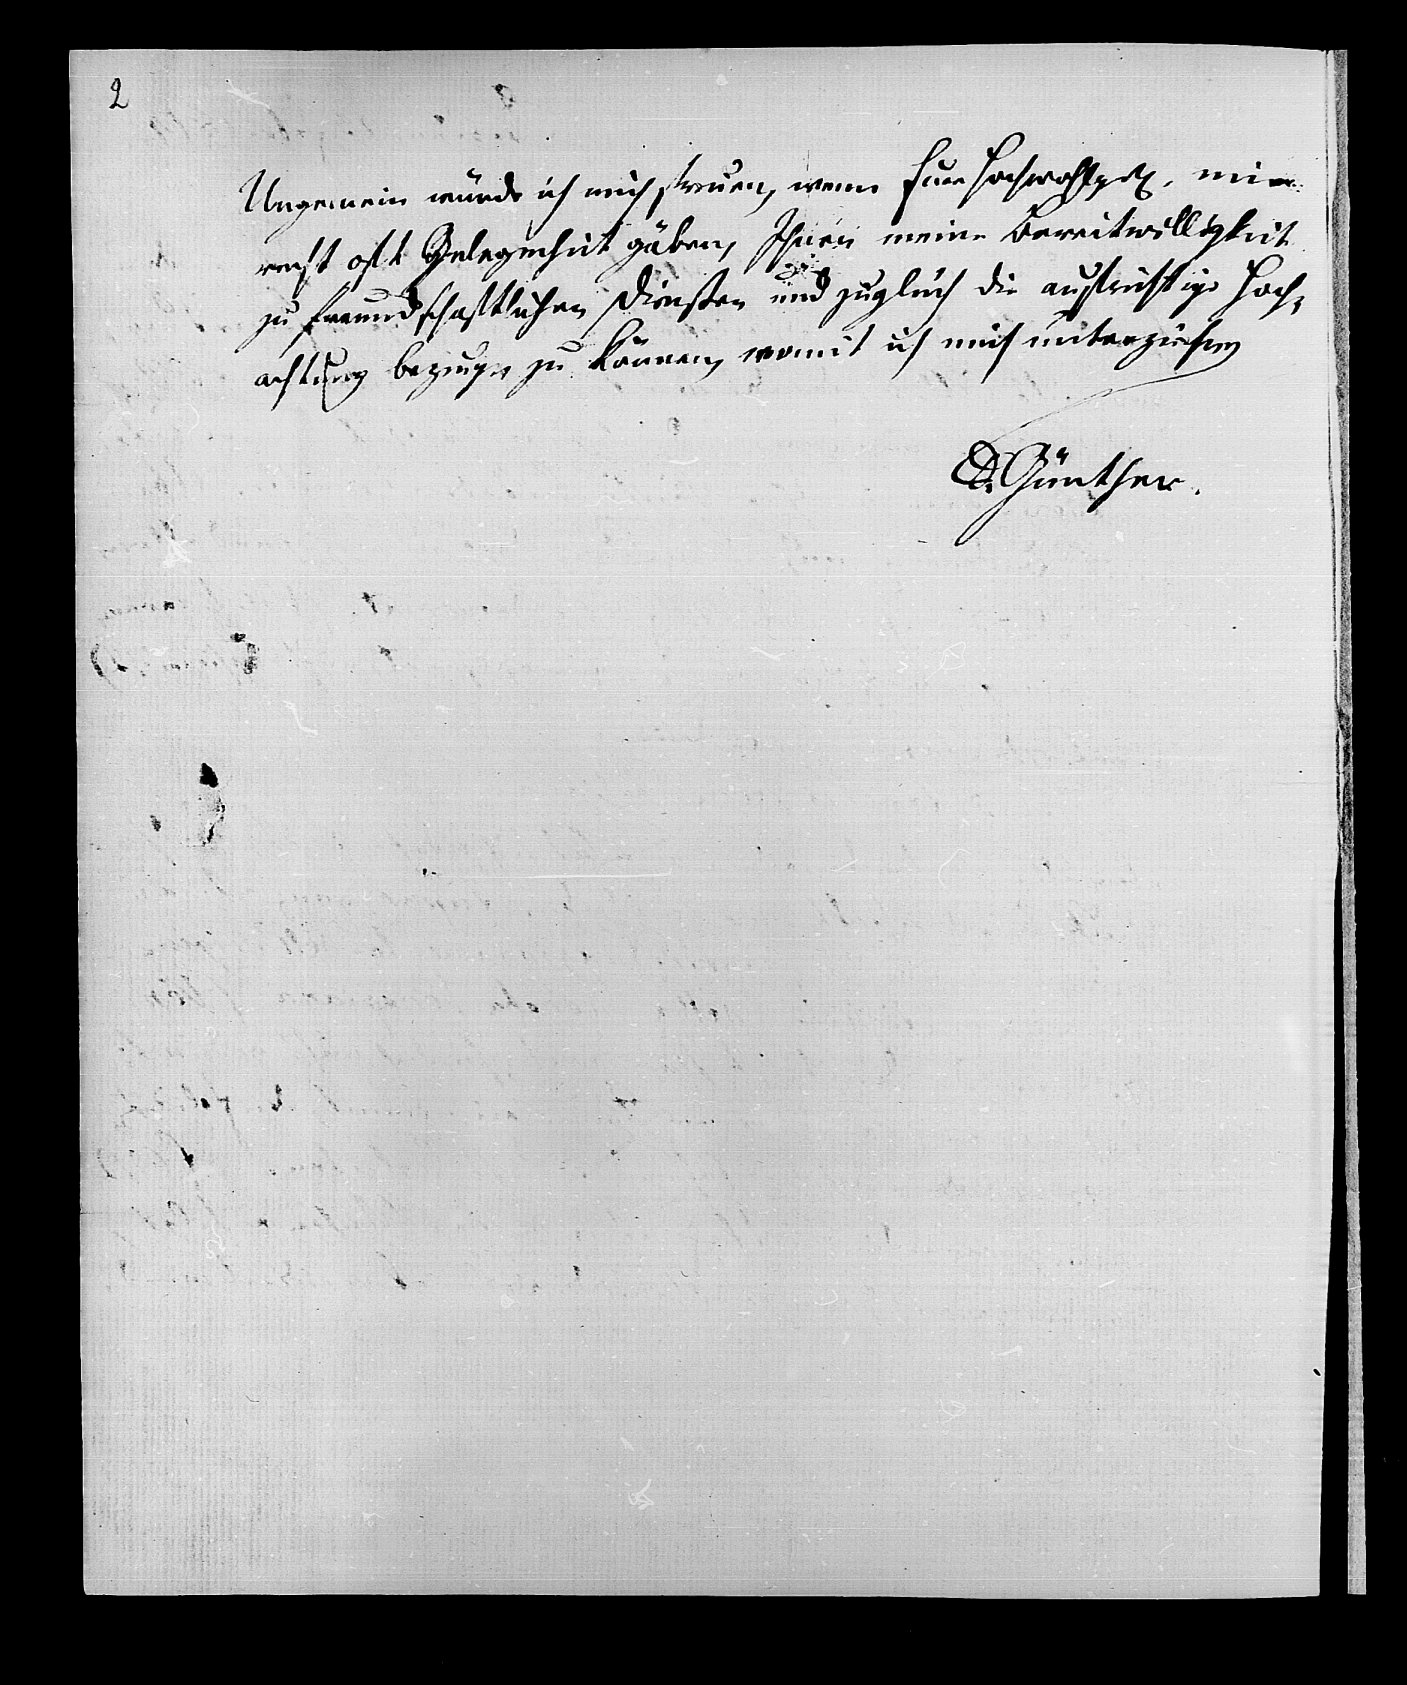 2
Ungemein würde ich mich freuen, wenn Eure Hochwohlgeb. mir
recht oft Gelegenheit gäben, Ihnen meine Bereitwilligkeit
zu freundschaftlichen Diensten und zugleich die aufrichtige Hoch-
achtung bezeugen zu können, womit ich mich unterziehen
D. Günther.